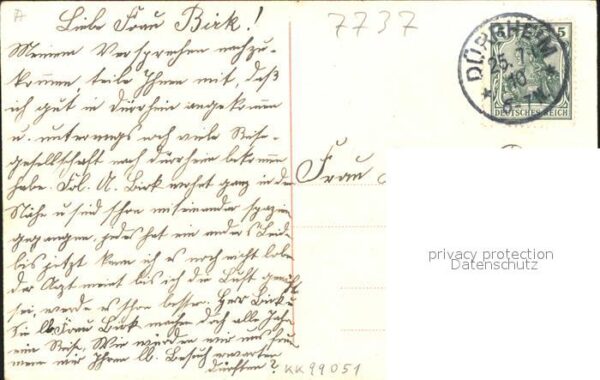 Liebe Frau Birk!
Meinem Versprechen nachzu-
kommen, teile Ihnen mit, daß
ich gut in Dürrheim angekommen
u. unterwegs noch viele Reise-
gesellschaft nach Dürrheim bekommen
habe. Frl. A. Birk wohnt ganz in der
Nähe u. sind schon miteinander spazieren
gegangen, jedes hat ein anderes Leid.
bis jetzt kann ich es noch nicht loben
der Arzt meint bis ich die Luft gewöhnt
sei, werde es schon besser. Herr Birk u.
Sie lb. Frau Birk machen doch alle Jahre
eine Reise. Wie würden wir uns freuen
wenn wir Ihren lb. Besuch erwarten
dürften?
7737
DÜRRHEIM
25. 7.
10
6-7N.
5
DEUTSCHES REICH
Frau
privacy protection
Datenschutz
KK99051